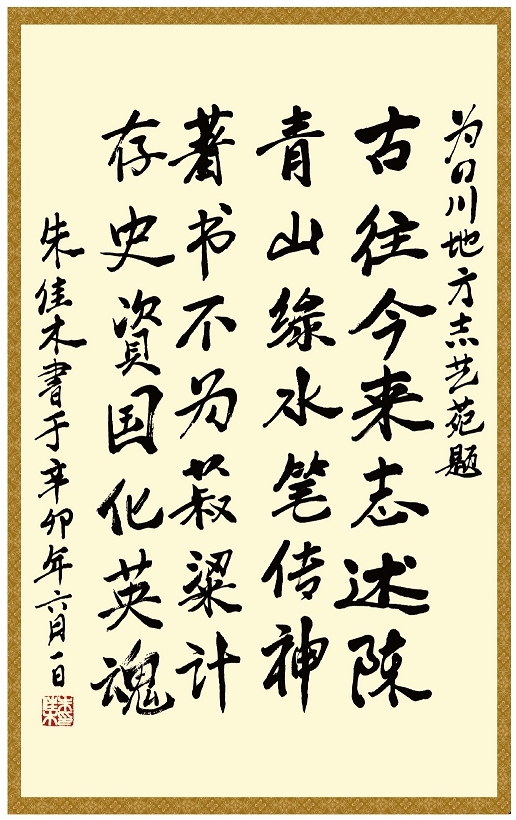 为四川地方志艺苑题
古往今来志述陈
青山绿水笔传神
著书不为菽粱计
存史資国化英魂
朱佳木書于辛卯年六月一日